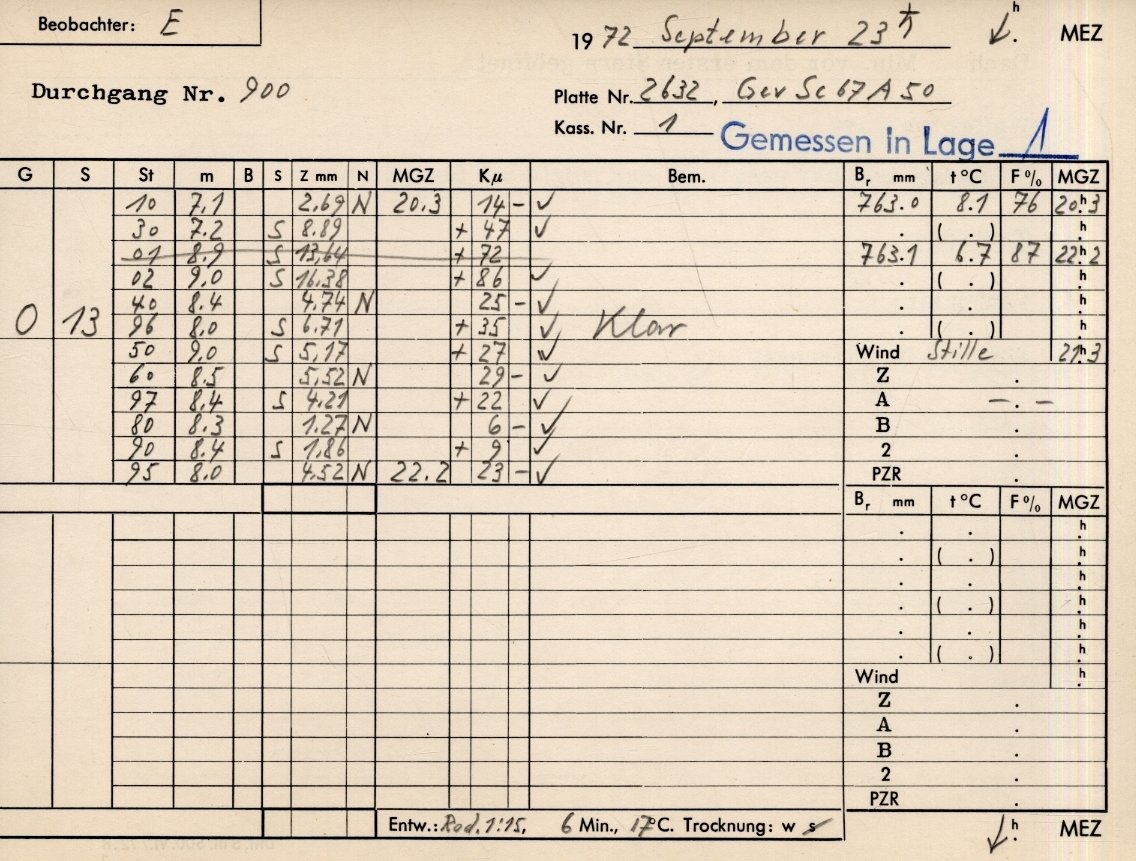 Beobachter: E
1972 September 23 h MEZ
Durchgang Nr. 900
Platte Nr. 2632, Gev Sc 67 A 50
Kass. Nr. 1
Gemessen in Lage 1
G S St m B S Z mm N MGZ Kμ Bem. Br mm t °C F % MGZ
10 7.1 2.69 N 20.3 14 - ✓ 763.0 8.1 76 20h.3
30 7.2 S 8.89 + 47 ✓ . ( . ) h.
01 8.9 S 13,64 + 72 763.1 6.7 87 22h.2
02 9.0 S 16.38 + 86 ✓ . ( . ) h.
40 8.4 4.74 N 25 - ✓ . . h.
0 13 96 8.0 S 6.71 + 35 ✓ Klar . ( . ) h.
50 9.0 S 5,17 + 27 ✓ Wind Stille 21h.3
60 8.5 5,52 N 29 - ✓ Z .
97 8.4 S 4.21 + 22 ✓ A - . -
80 8.3 1.27 N 6 - ✓ B .
90 8.4 S 1,86 + 9 ✓ 2 .
95 8.0 4.52 N 22.2 23 - ✓ PZR .
Br mm t °C F % MGZ
. . h.
. ( . ) h.
. . h.
. ( . ) h.
. . h.
. ( . ) h.
Wind h.
Z .
A .
B .
2 .
PZR .
Entw.: Rod. 1:15, 6 Min., 17°C. Trocknung: w s
h. MEZ